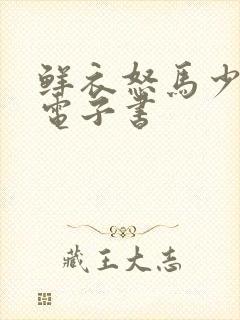 鮮衣怒馬少
電子書
藏王大志